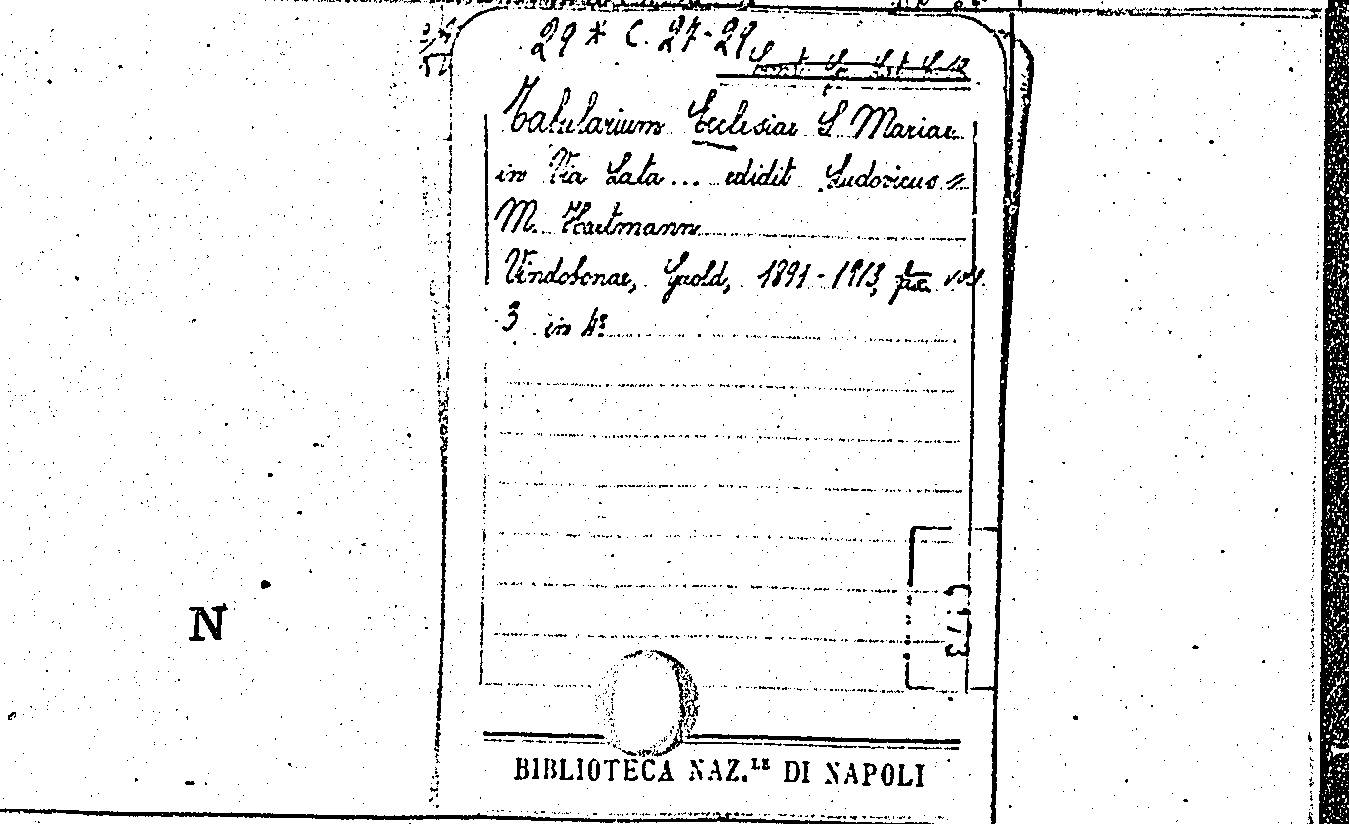 29* C. 27-29
Tabularium Ecclesiae S. Mariae
in Via Lata... edidit Ludovicus =
M. Hartmann
Vindobonae, Gerold, 1891-1913, vol.
3 in 4°
N
BIBLIOTECA NAZ.LE DI NAPOLI